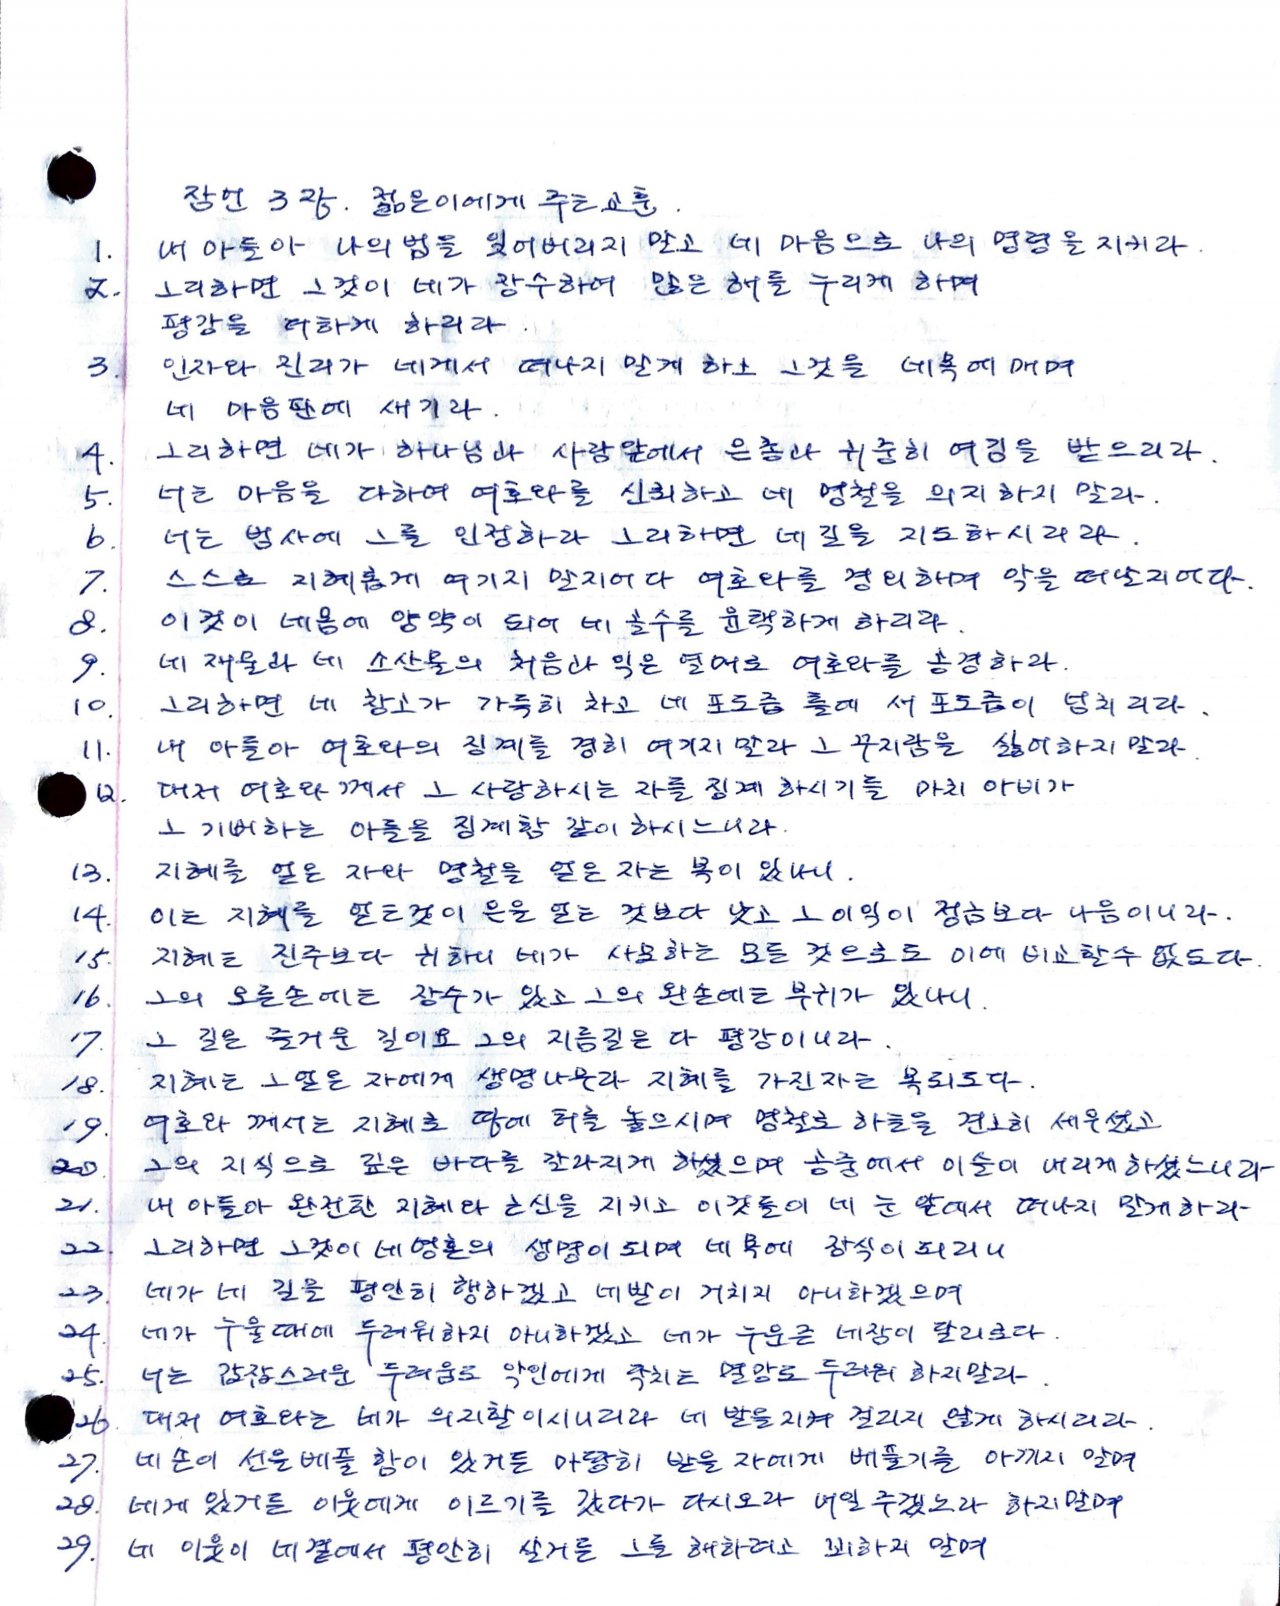 잠언 3장. 젊은이에게 주는교훈.
1. 내 아들아 나의 법을 잊어버리지 말고 네 마음으로 나의 명령을 지키라.
2. 그리하면 그것이 네가 장수하여 많은 해를 누리게 하며
평강을 더하게 하리라.
3. 인자와 진리가 네게서 떠나지 말게 하고 그것을 네목에 매며
네 마음판에 새기라.
4. 그리하면 네가 하나님과 사람앞에서 은총과 귀중히 여김을 받으리라.
5. 너는 마음을 다하여 여호와를 신뢰하고 네 명철을 의지하지 말라.
6. 너는 범사에 그를 인정하라 그리하면 네길을 지도하시리라.
7. 스스로 지혜롭게 여기지 말지어다 여호와를 경외하며 악을 떠날지어다.
8. 이것이 네몸에 양약이 되어 네 골수를 윤택하게 하리라.
9. 네 재물과 네 소산물의 처음과 익은 열매로 여호와를 공경하라.
10. 그리하면 네 창고가 가득히 차고 네 포도즙 틀에 서 포도즙이 넘치리라.
11. 내 아들아 여호와의 징계를 경히 여기지말라 그 꾸지람을 싫어하지말라.
12. 대저 여호와께서 그 사랑하시는 자를 징계하시기를 마치 아비가
그 기뻐하는 아들을 징계함 같이하시느니라.
13. 지혜를 얻은 자와 명철을 얻은 자는 복이 있나니.
14. 이는 지혜를 얻는것이 은을 얻는 것보다 낫고 그 이익이 정금보다 나음이니라.
15. 지혜는 진주보다 귀하니 네가 사모하는 모든 것으로도 이에 비교할수 없도다.
16. 그의 오른손에는 장수가 있고 그의 왼손에는 부귀가 있나니.
17. 그 길은 즐거운 길이요 그의 지름길은 다 평강이니라.
18. 지혜는 그 얻은 자에게 생명나무라 지혜를 가진자는 복되도다.
19. 여호와께서는 지혜로 땅에 터를 놓으시며 명철로 하늘을 견고히 세우셨고
20. 그의 지식으로 깊은 바다를 갈라지게 하셨으며 공중에서 이슬이 내리게하셨느니라
21. 내 아들아 완전한 지혜와 근신을 지키고 이것들이 네 눈 앞에서 떠나지 말게하라
22. 그리하면 그것이 네영혼의 생명이되며 네 목에 장식이 되리니
23. 네가 네 길을 평안히 행하겠고 네발이 거치지 아니하겠으며
24. 네가 누울때에 두려워하지 아니하겠고 네가 누운즉 네잠이 달리로다.
25. 너는 갑작스러운 두려움도 악인에게 닥치는 멸망도 두려워 하지말라.
26. 대저 여호와는 네가 의지할이시니리라 네 발을지켜 걸리지 않게 하시리라.
27. 네 손이 선을 베풀 함이 있거든 마땅히 받을 자에게 베풀기를 아끼지 말며
28. 네게 있거든 이웃에게 이르기를 갔다가 다시오라 내일 주겠노라 하지말며
29. 네 이웃이 네곁에서 평안히 살거든 그를 해하려고 꾀하지 말며